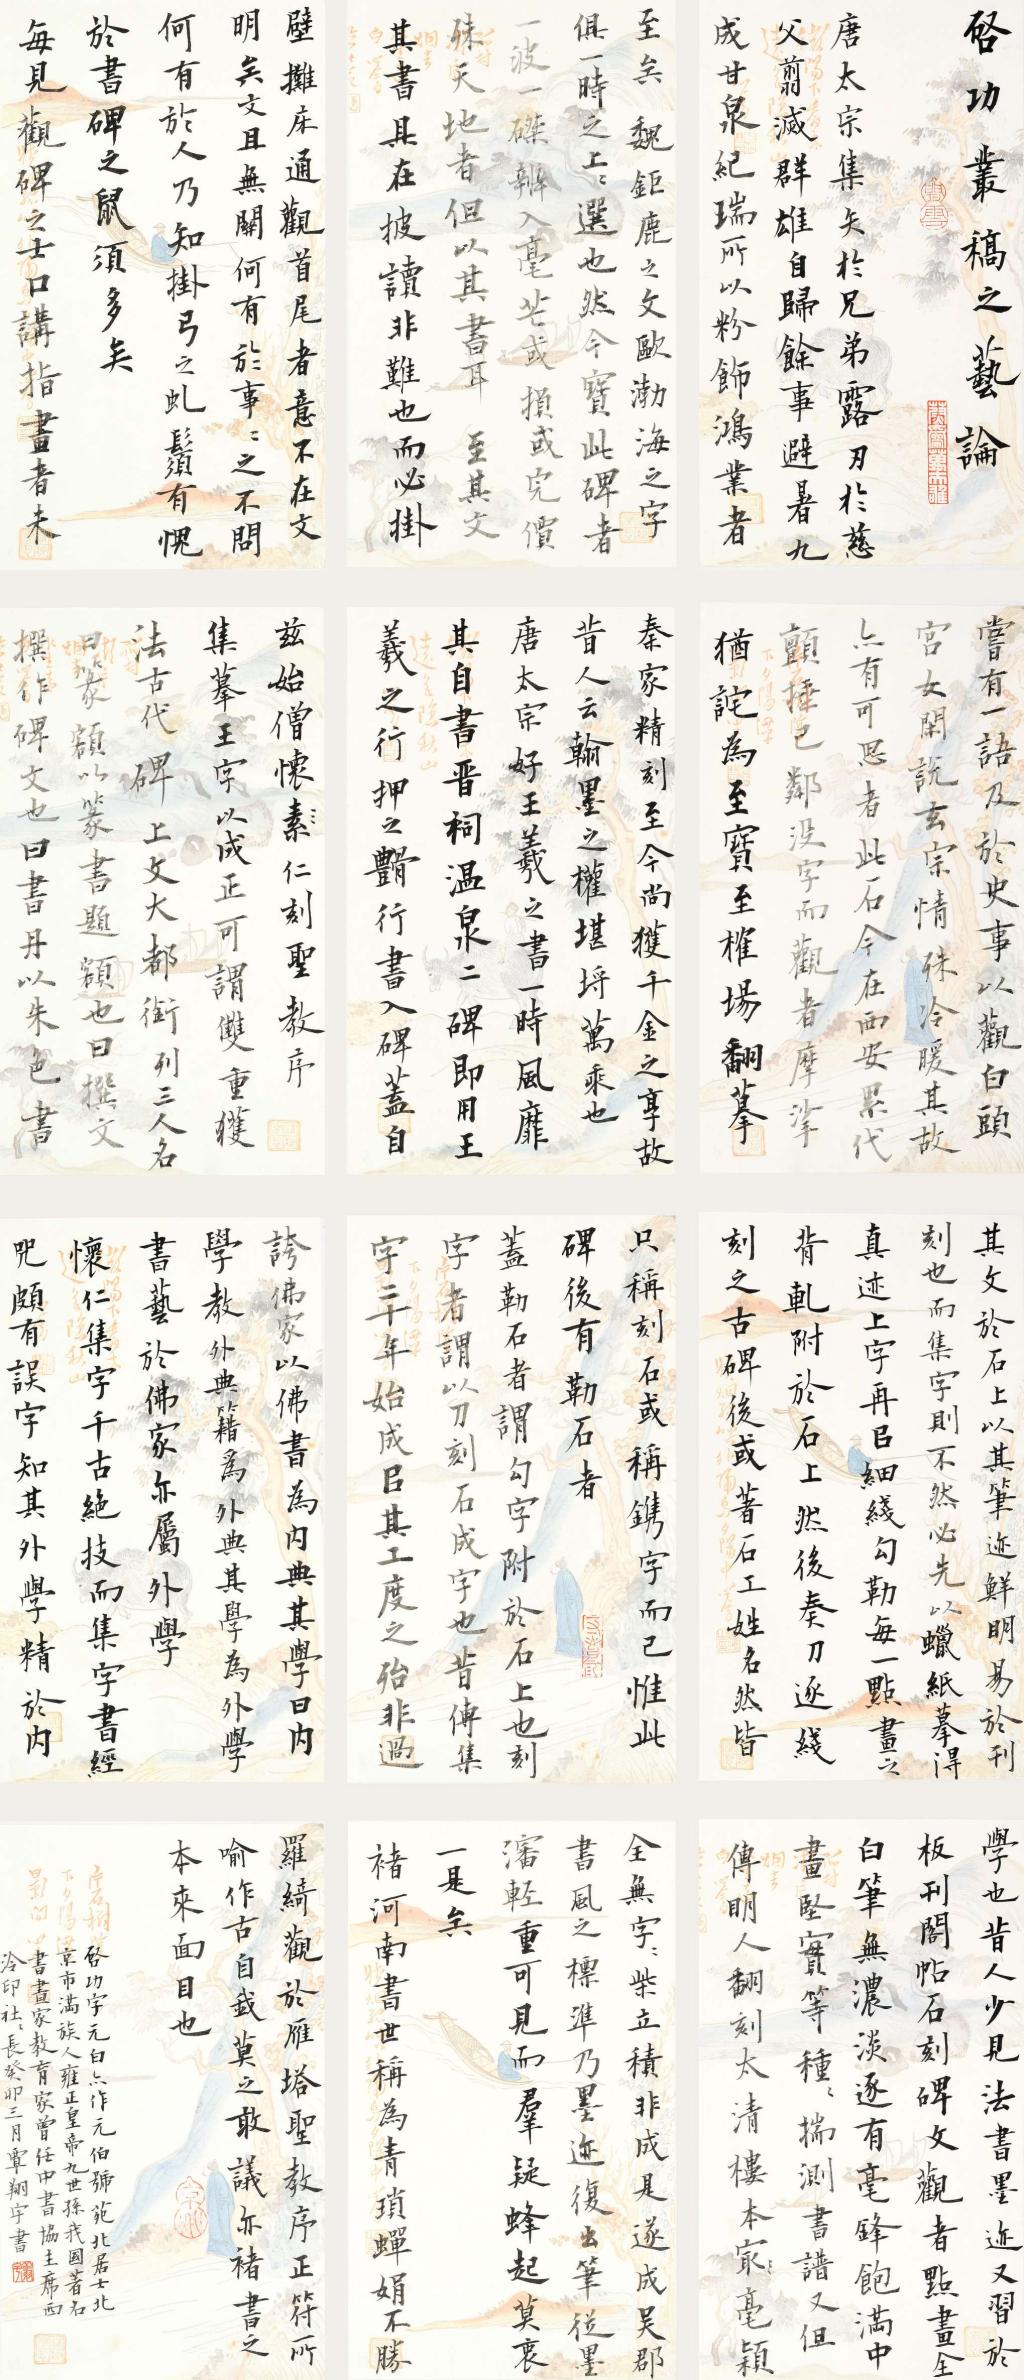 啓功叢稿之藝論
唐太宗集矢於兄弟露刃於慈
父翦滅群雄自歸餘事避暑九
成甘泉紀瑞所以粉飾鴻業者
至矣魏鉅鹿之文歐渤海之字
俱一時之上上選也然今寶此碑者
一波一磔辨入毫芒或損或完價
殊天地者但以其書耳至其文
其書具在披讀非難也而必掛
壁攤床通觀首尾者意不在文
明矣文且無關何有於事事之不問
何有於人乃知掛弓之虬鬚有愧
於書碑之鼠須多矣
每見觀碑之士口講指畫者未
嘗有一語及於史事以觀白頭
宮女閑說玄宗情殊冷暖其故
亦有可思者此石今在西安累代
顫捶已鄰沒字而觀者摩挲
猶詫為至寶至榷場翻摹
秦家精刻至今尚獲千金之享故
昔人云翰墨之權堪埒萬乘也
唐太宗好王羲之書一時風靡
其自書晉祠温泉二碑即用王
羲之行押之體行書入碑蓋自
兹始僧懷素仁刻聖教序
集摹王字以成正可謂雙重獲
法古代碑上文大都銜列三人名
曰篆額以篆書題額也曰撰文
撰作碑文也曰書丹以朱色書
其文於石上以其筆迹鮮明易於刊
刻也而集字則不然必先以蠟紙摹得
真迹上字再㠯細綫勾勒每一點畫之
背軋附於石上然後奏刀逐綫
刻之古碑後或著石工姓名然皆
只稱刻石或稱鐫字而已惟此
碑後有勒石者
蓋勒石者謂勾字附於石上也刻
字者謂以刀刻石成字也昔傳集
字二十年始成㠯其工度之殆非過
誇佛家以佛書為内典其學曰内
學教外典籍爲外典其學為外學
書藝於佛家亦屬外學
懷仁集字千古絶技而集字書經
咒頗有誤字知其外學精於内
學也昔人少見法書墨迹又習於
板刊閣帖石刻碑文觀者點畫全
白筆無濃淡逐有毫鋒飽滿中
畫堅實等種種揣測書譜又但
傳明人翻刻太清樓本冣冣毫穎
全無字字柴立積非成是遂成吴郡
書風之標準乃墨迹復出筆從墨
瀋輕重可見而羣疑蜂起莫衷
一是矣
褚河南書世稱為青瑣蟬娟不勝
羅綺觀於雁塔聖教序正符所
喻作古自我莫之敢議亦褚書之
本來面目也
啓功字元白亦作元伯號苑北居士北
京市滿族人雍正皇帝九世孫我國著名
書畫家教育家曾任中書協主席西
泠印社社長癸卯三月覃翔宇書